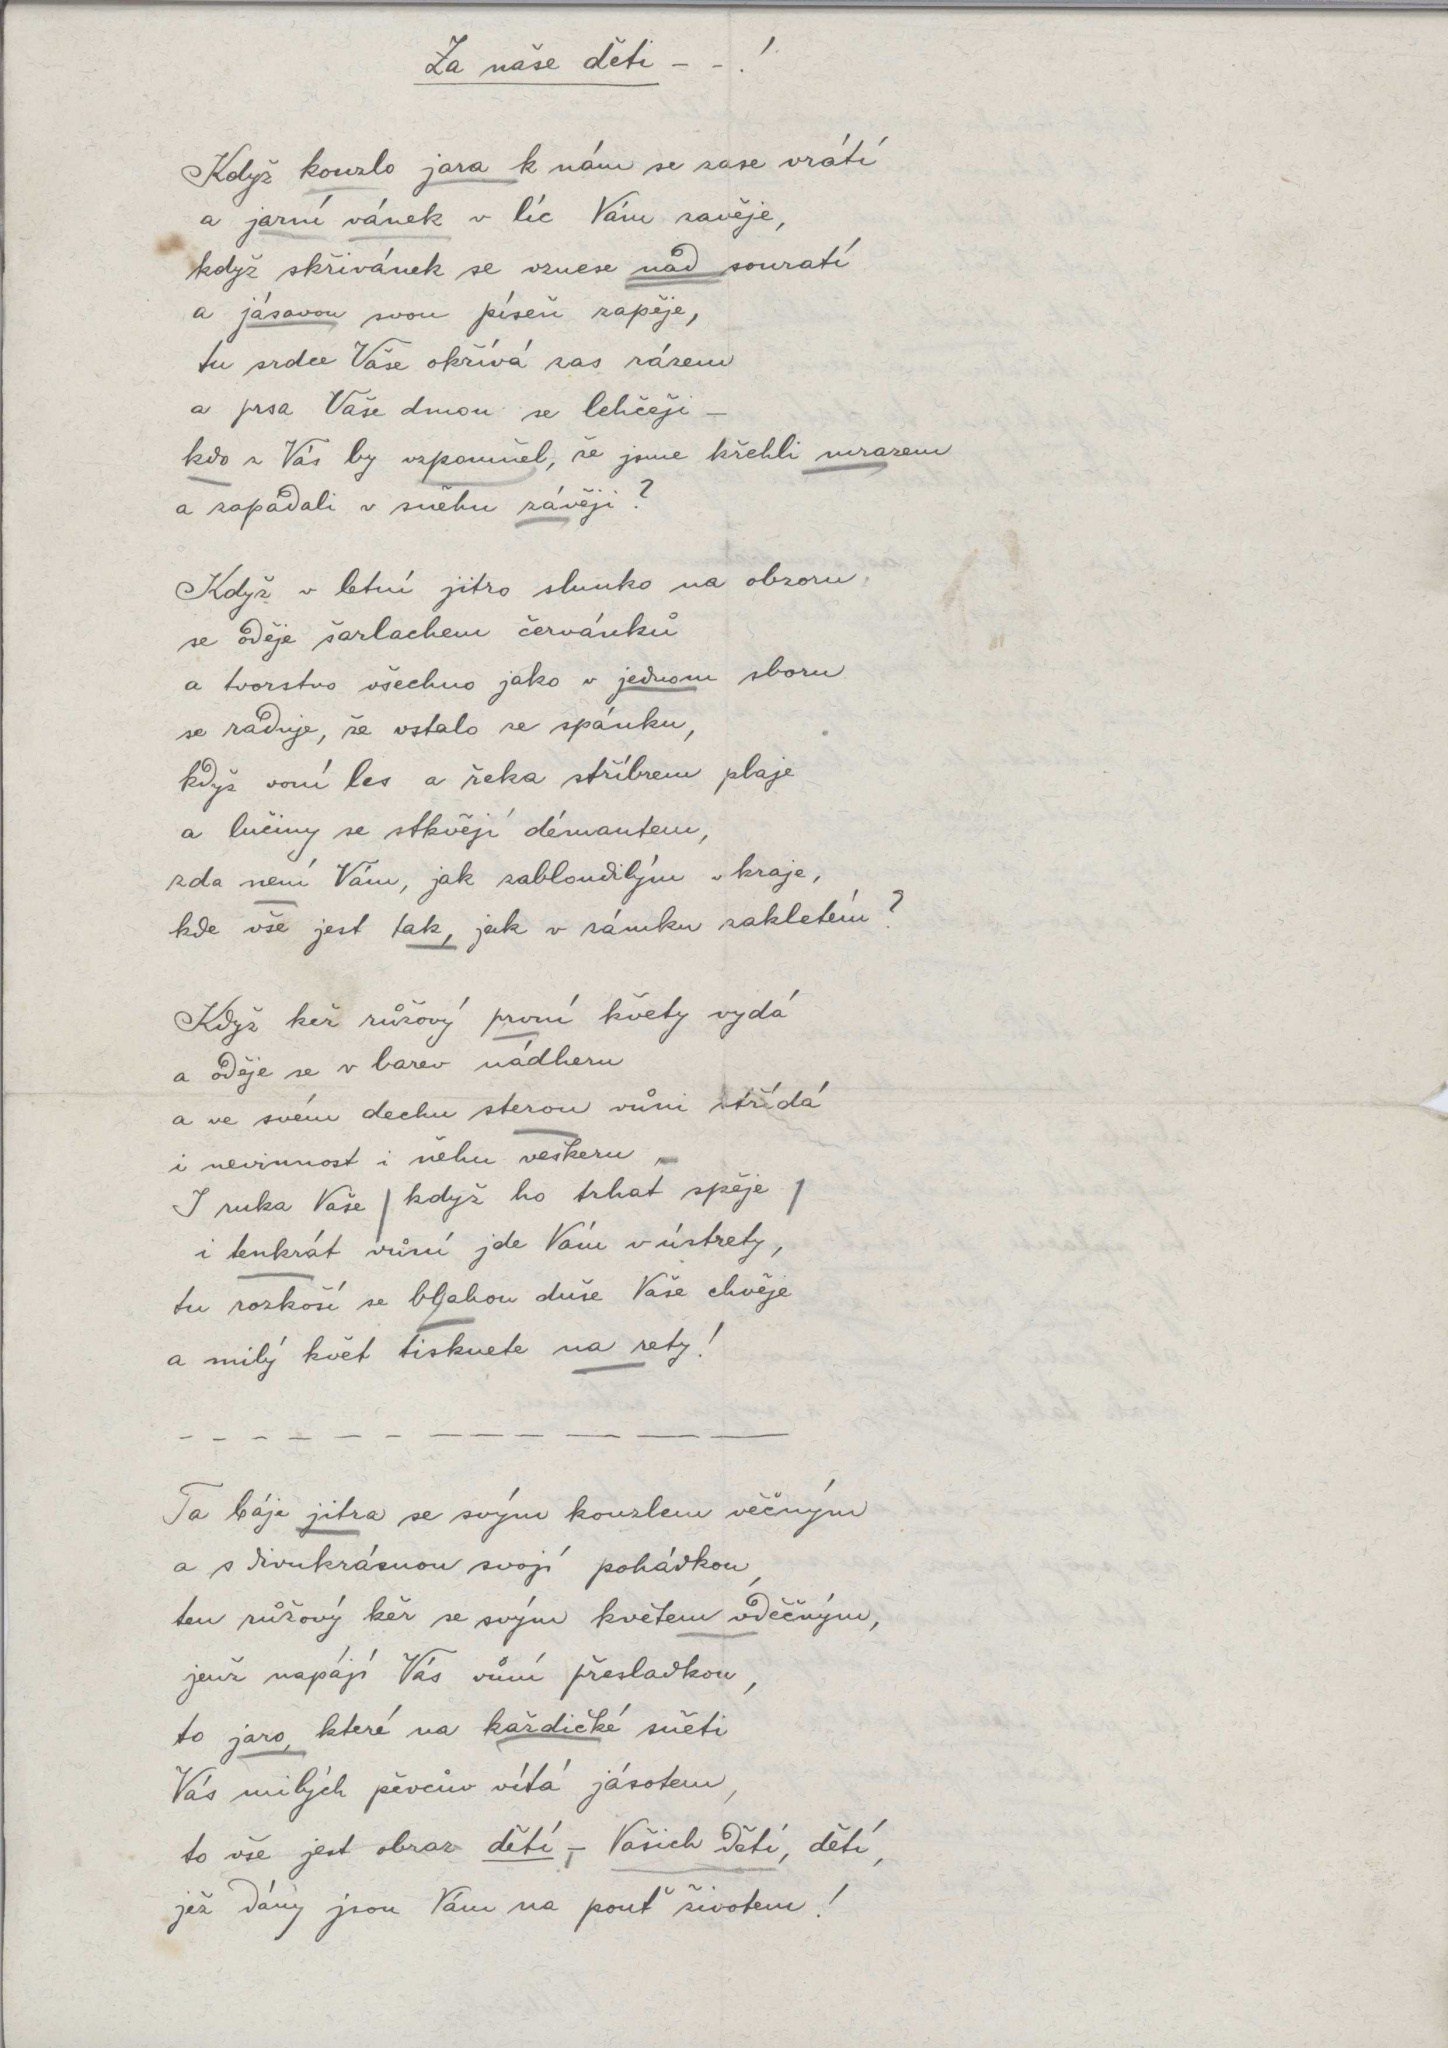 Za naše děti - - !
Když kouzlo jara k nám se zase vrátí
a jarní vánek v líc Vám zavěje,
když skřivánek se vznese nad souvratí
a jásavou svou píseň zapěje,
tu srdce Vaše okřívá zas rázem
a prsa Vaše dmou se lehčeji –
kdo z Vás by vzpomněl, že jsme křehli mrazem
a zapadali v sněhu závěji?
Když v letní jitro slunko na obzoru
se oděje šarlachem červánků
a tvorstvo všechno jako v jednom sboru
se raduje, že vstalo ze spánku,
když voní les a řeka stříbrem plaje
a lučiny se stkvějí démantem,
zda není Vám, jak zabloudilým v kraje,
kde vše jest tak, jak v zámku zakletém?
Když keř růžový první květy vydá
a oděje se v barev nádheru
a ve svém dechu sterou vůni střídá
i nevinnost i něhu veškeru –
I ruka Vaše / když ho trhat spěje /
i tenkrát vůní jde Vám v ústrety,
tu rozkoší se blahou duše Vaše chvěje
a milý květ tisknete na rety!
Ta báje jitra se svým kouzlem věčným
a s divukrásnou svojí pohádkou,
ten růžový kěř se svým květem vděčným,
jenž napájí Vás vůní přesladkou,
to jaro, které na každičké sněti
Vás milých pěvcův vítá jásotem,
to vše jest obraz dětí, – Vašich dětí, dětí,
jež dány jsou Vám na pouť životem!